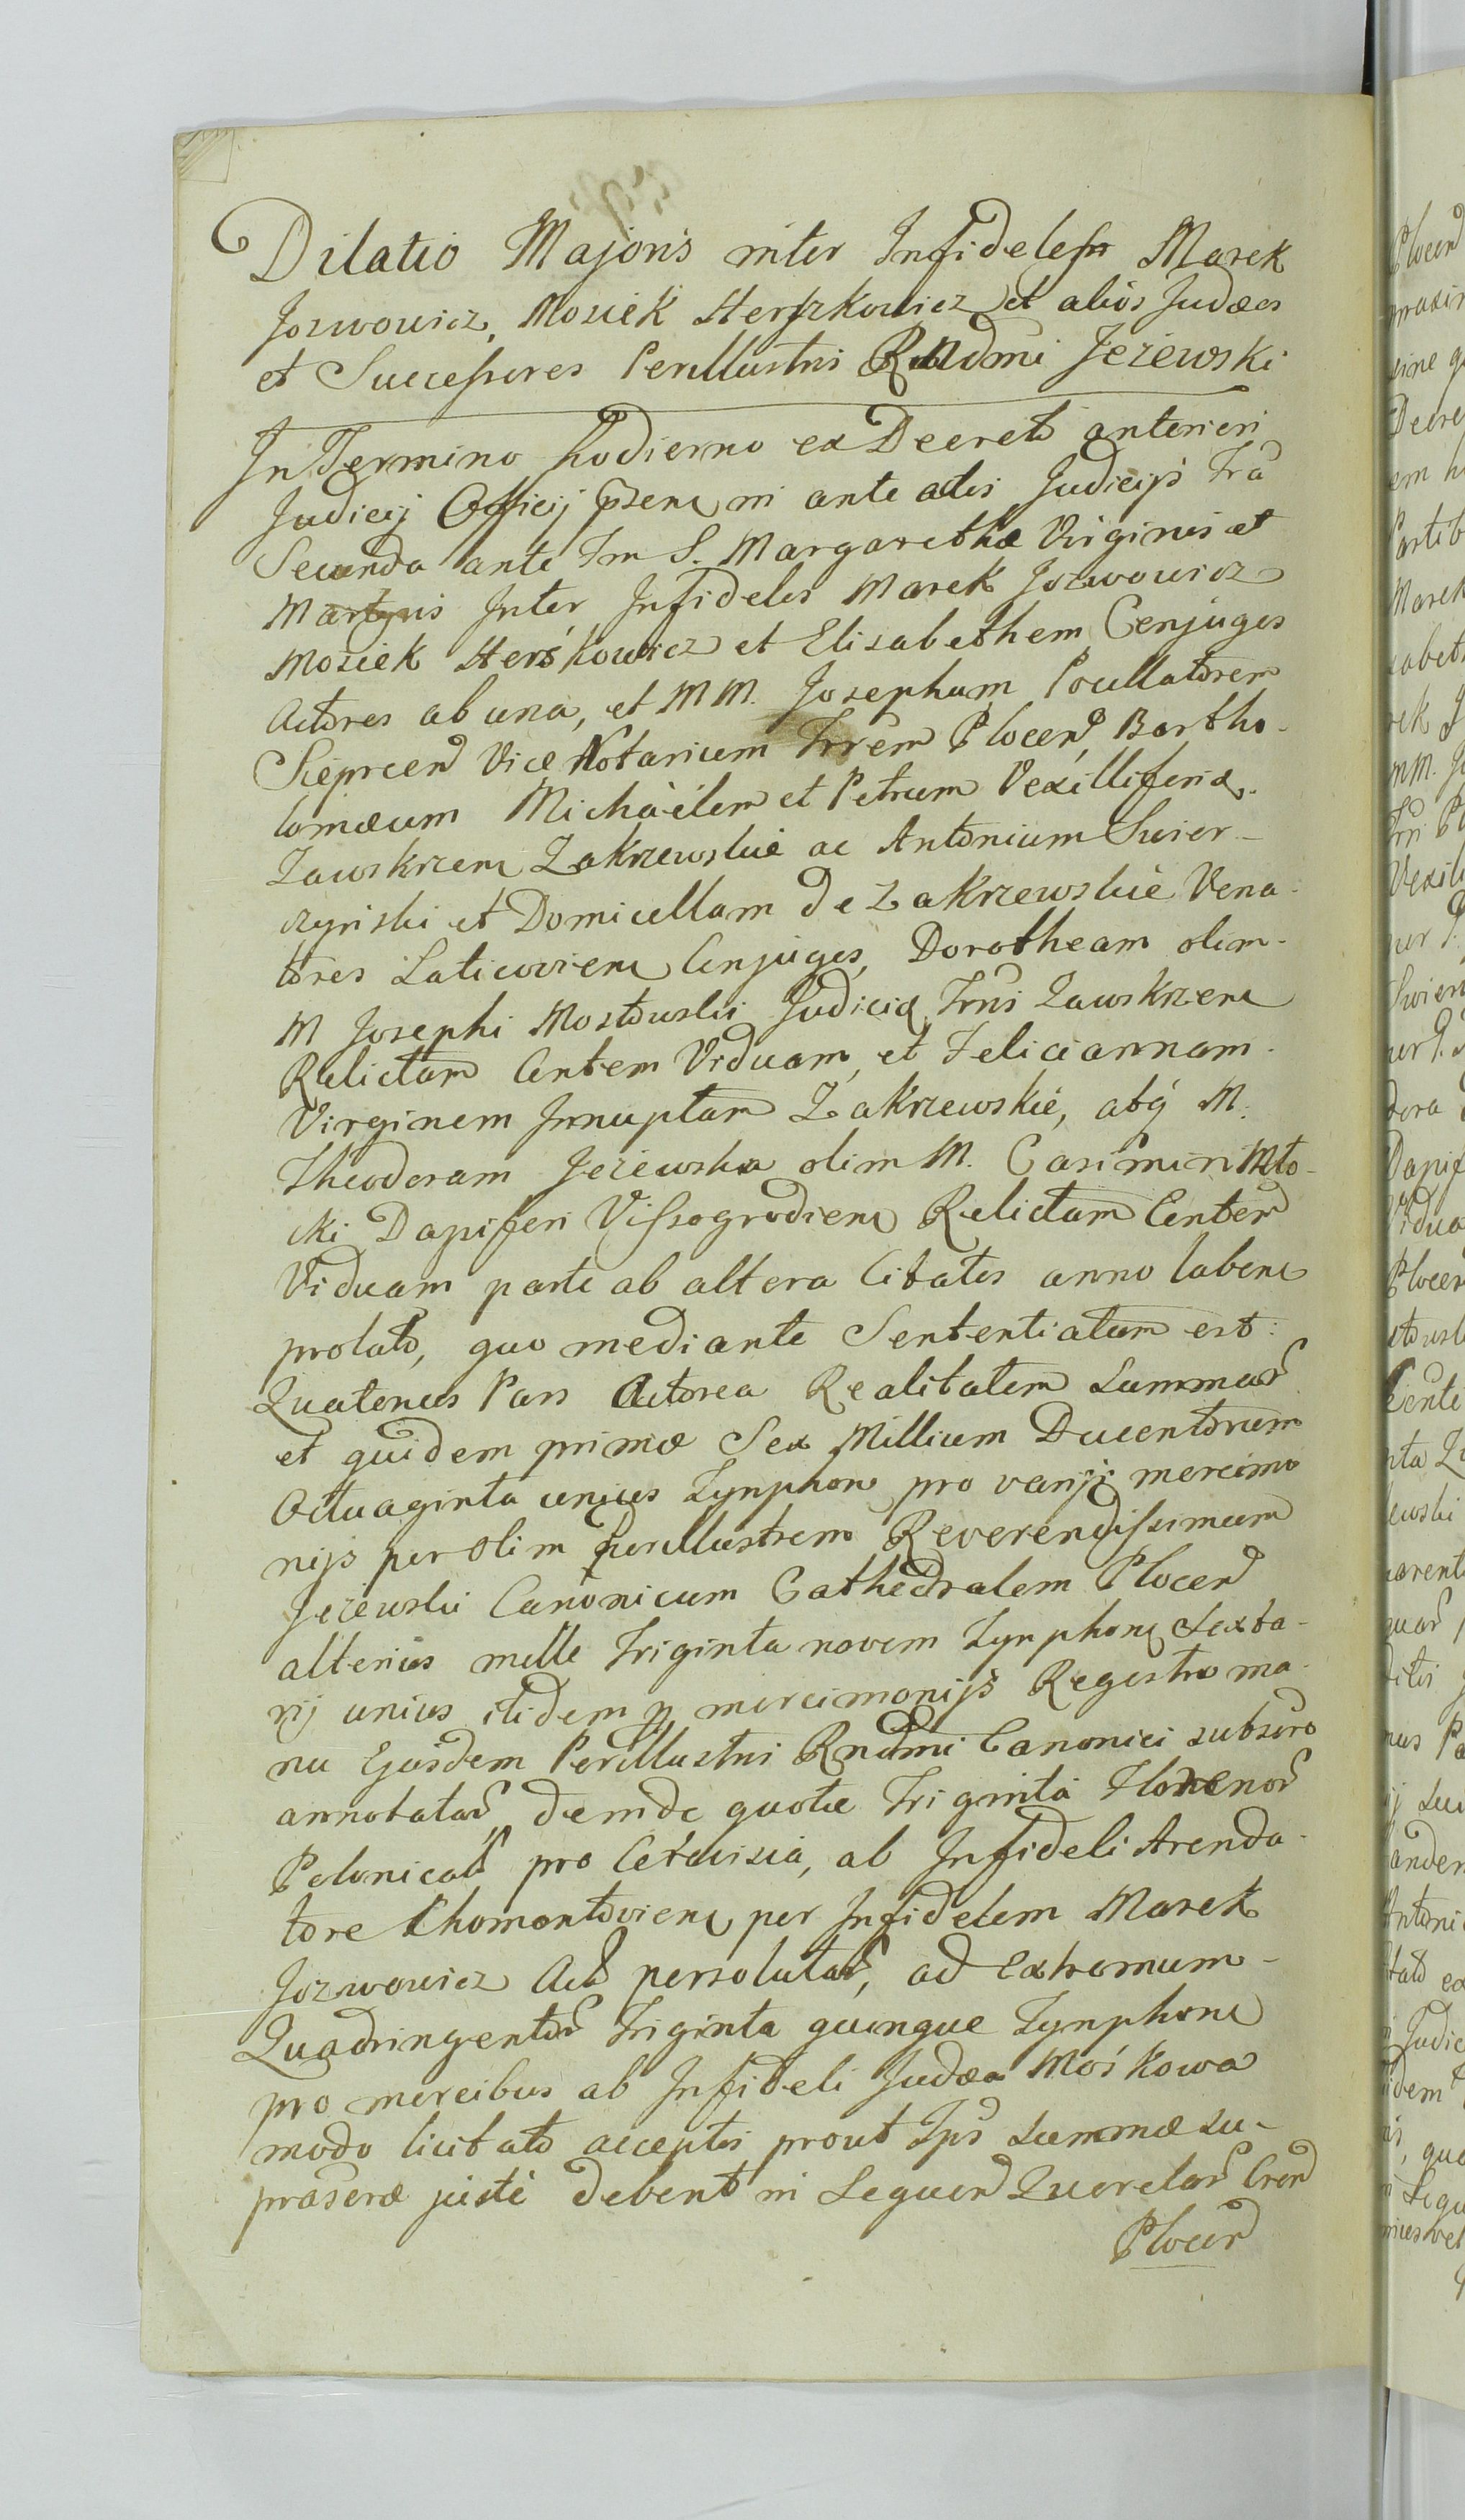 Dilatio Majoris inter Infideles Marek
Jozwowicz, Mosiek Herszkowicz et alios Judæos
et Successores Perillustris Rndmi Jeżewski
In Termino hodierno ex Decreto anteriori
Judicij Officij pzen in ante actis Judicijs Fra
Secunda ante Fm S. Margarethæ Virginis et
Martyris Inter Infideles Marek Jozwowicz
Mosiek Herśkowicz et Elisabethem Conjuges
Actores ab una, et MM. Josephum Pocillatorem
Sieprcen Vice Notarium Trrem Plocen, Bartho-
lomæum Michaëlem et Petrum Vexilliferid.
Zawskrzen Zakrzewskie ac Antonium Swier-
czynski et Domicellam de Zakrzewskie Vena-
tores Laticovien Conjuges, Dorotheam olim
M Josephi Mostowski Judicid Trris Zawskrzen
Relictam Contem Viduam, et Feliciannam
Virginem Innuptam Zakrzewskie, atq M.
Theodoram Jeżewska olim M. Casimiri Mło-
cki Dapiferi Vissogrodien Relictam Contem
Viduam parte ab altera Citatos anno laben
prolato, quo mediante Sententiatum est:
Quatenus Pars Actorea Realitatem Summar
et quidem primæ Sex Millium Ducentorum
Octuaginta unius Tynphon pro varijs mercimo
nijs per olim Perillustrem Reverendissimum
Jeżewski Canonicum Cathedralem Plocen
alterius mille Triginta novem Tynphon Sexta-
rij unius itidem p mercimonijs Regestro ma-
nu Ejusdem Perillustris Rndmi Canonici subscro
annotatar deinde quotæ Triginta Florenor
Polonicar pro Cerevisia, ab Infideli Arenda-
tore Chomontovien per Infidelem Marek
Jozwowicz Act persolutar, ad extremum
Quadringentor Triginta quinque Tynphon
pro mercibus ab Infideli Judæa Mośkowa
modo licitato acceptis prout Ips Summæ su-
praseræ justè debent in Sequen Querelar Cron
Plocen